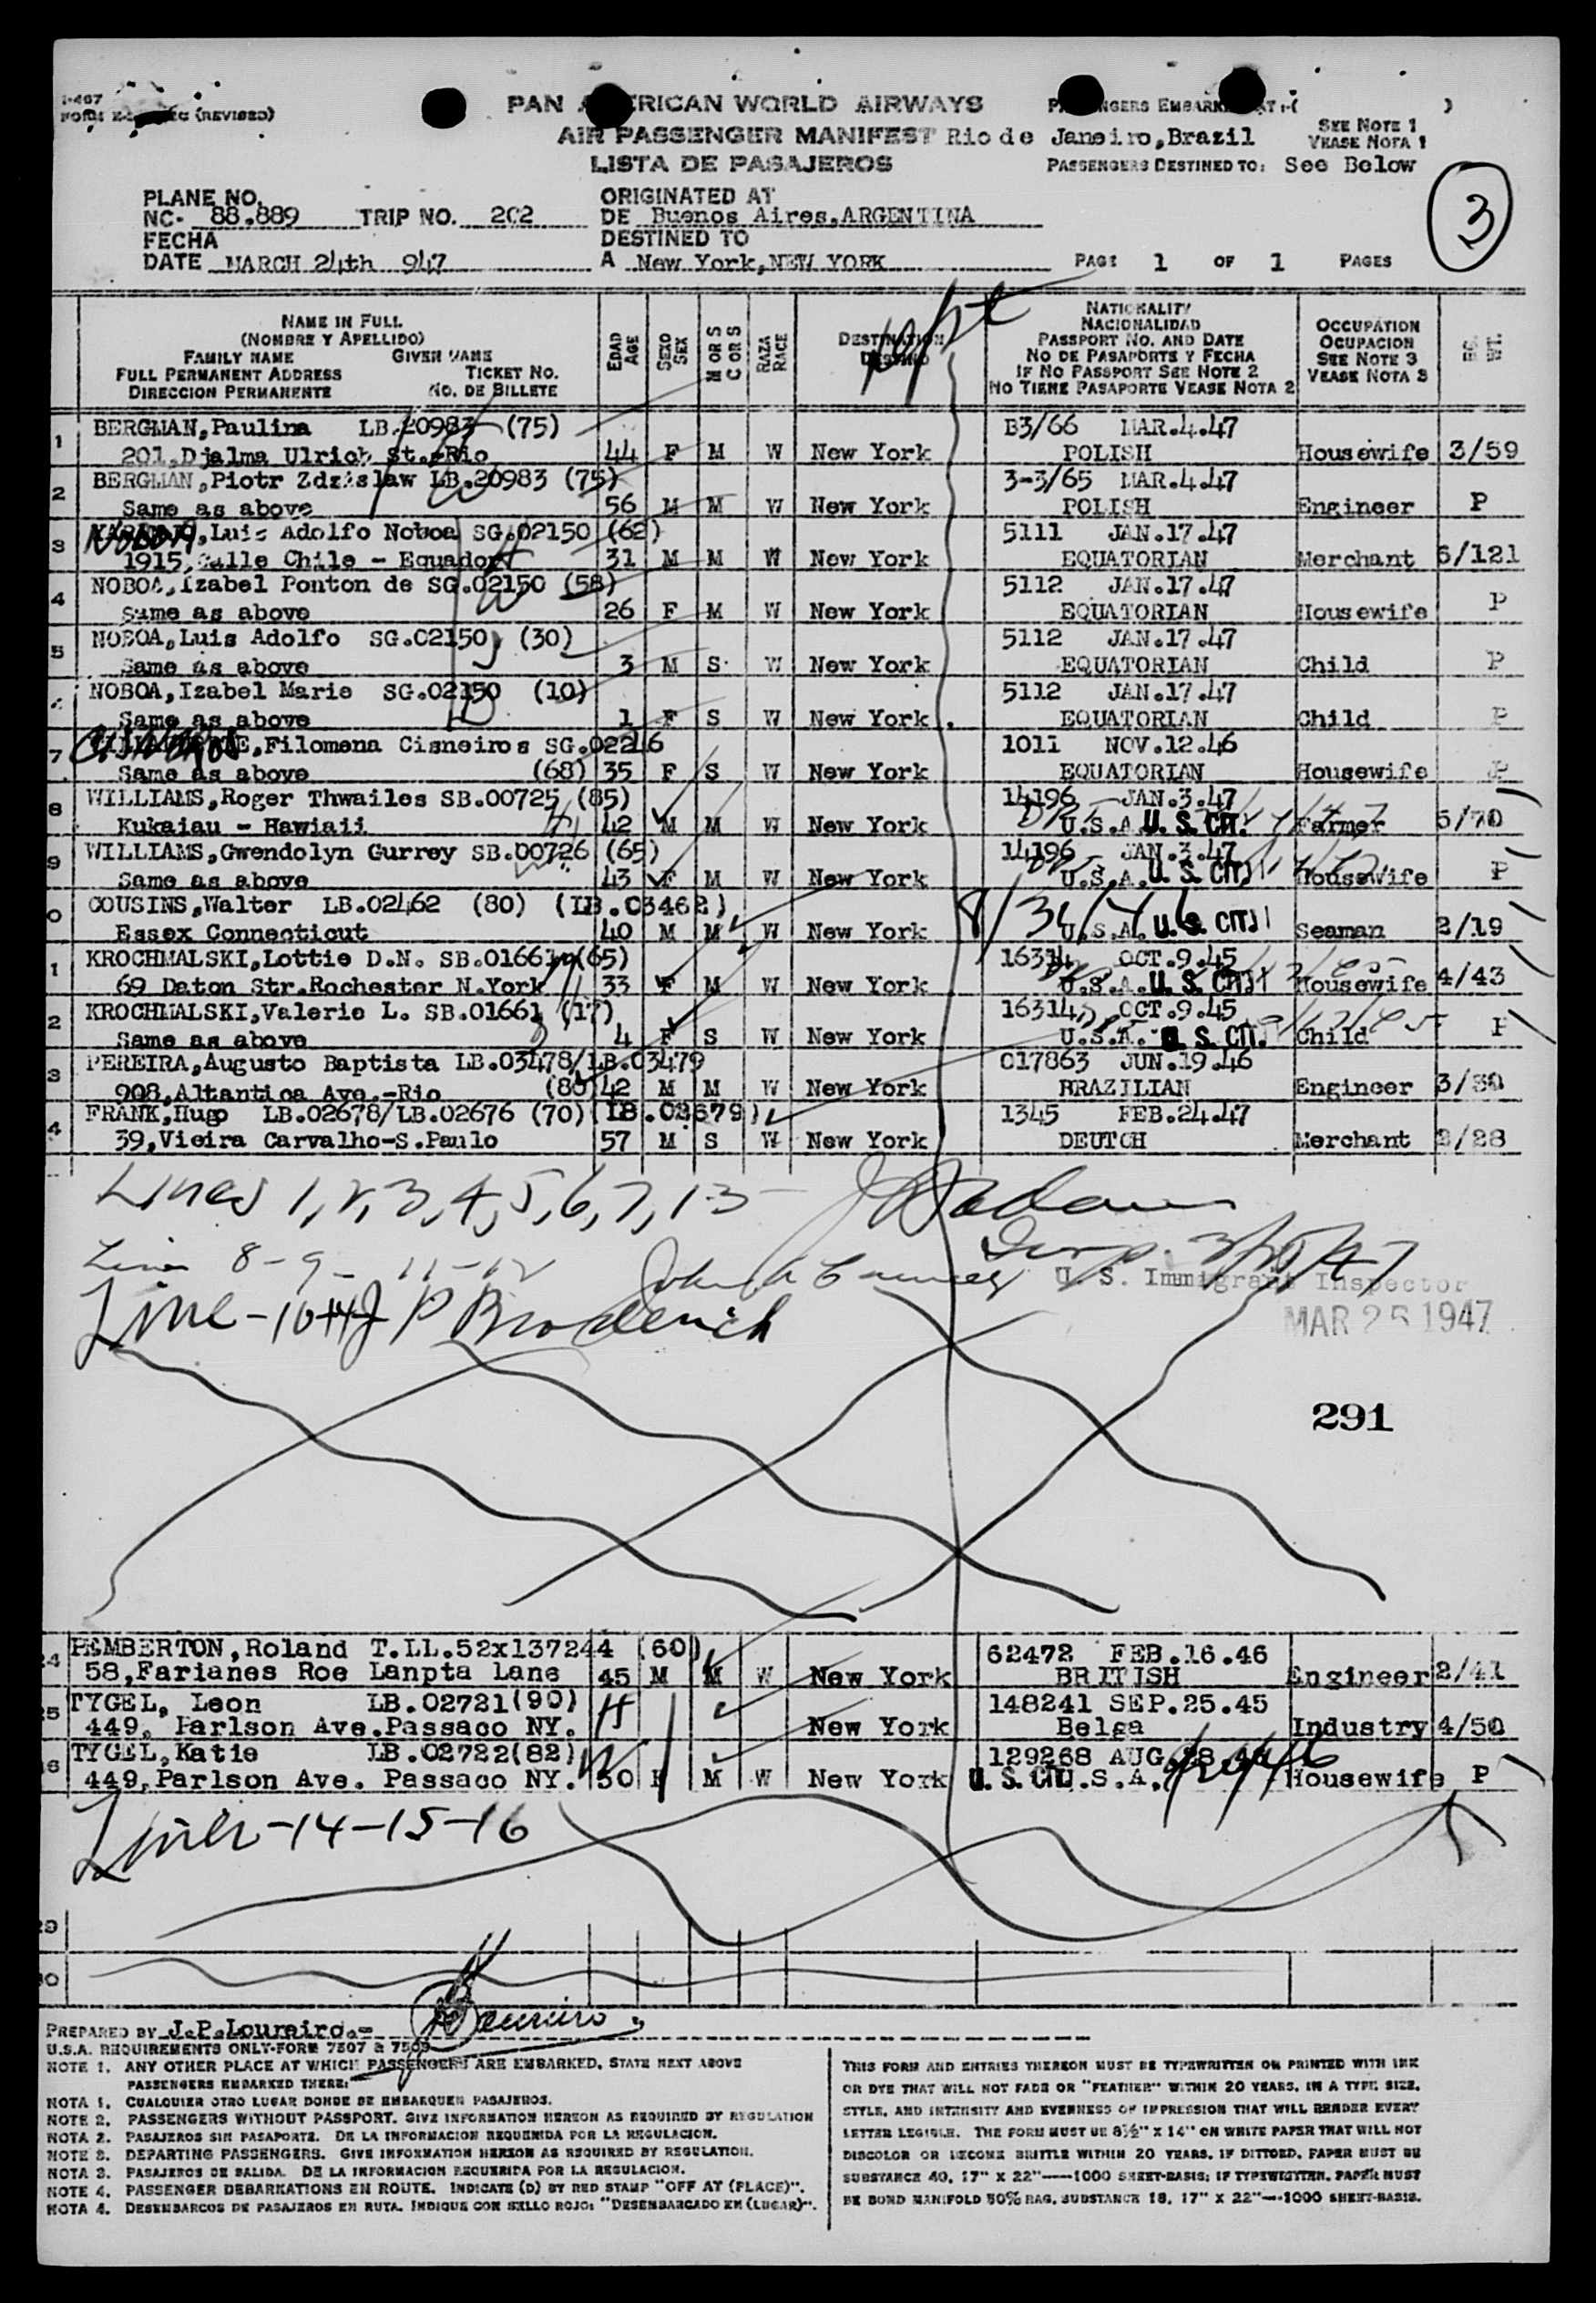 I-467
PAN AMERICAN WORLD AIRWAYS
AIR PASSENGER MANIFEST
LISTA DE PASAJEROS
PASSENGERS EMBARKED AT:( )
Rio de Janeiro,Brazil
SEE NOTE 1
VEASE NOTA 1
PASSENGERS DESTINED TO: See Below
3
PLANE NO.
NC- 88.889 TRIP NO. 202
FECHA
DATE MARCH 24th 947
ORIGINATED AT
DE Buenos Aires,ARGENTINA
DESTINED TO
A New York,NEW YORK
PAGE 1 OF 1 PAGES
NAME IN FULL
(NOMBRE Y APELLIDO)
FAMILY NAME GIVEN NAME
FULL PERMANENT ADDRESS TICKET NO.
DIRECCION PERMANENTE NO. DE BILLETE
EDAD
AGE
SEXO
SEX
M OR S
C OR S
RAZA
RACE
DESTINATION
DESTINO
NATIONALITY
NACIONALIDAD
PASSPORT NO. AND DATE
NO DE PASAPORTE Y FECHA
IF NO PASSPORT SEE NOTE 2
NO TIENE PASAPORTE VEASE NOTA 2
OCCUPATION
OCUPACION
SEE NOTE 3
VEASE NOTA 3
BG.
WT.
1 BERGMAN,Paulina LB.20983 (75) B3/66 MAR.4.47
201,Djalma Ulrich St.-Rio 44 F M W New York POLISH Housewife 3/59
2 BERGMAN,Piotr Zdzislaw LB.20983 (75) 3-3/65 MAR.4.47
Same as above 56 M M W New York POLISH Engineer P
3 NOBOA,Luis Adolfo Noboa SG.02150 (62) 5111 JAN.17.47
1915,Calle Chile - Equador 31 M M W New York EQUATORIAN Merchant 6/121
4 NOBOA,Izabel Ponton de SG.02150 (58) 5112 JAN.17.47
Same as above 26 F M W New York EQUATORIAN Housewife P
5 NOBOA,Luis Adolfo SG.02150 (30) 5112 JAN.17.47
Same as above 3 M S W New York EQUATORIAN Child P
NOBOA,Izabel Marie SG.02150 (10) 5112 JAN.17.47
Same as above 1 F S W New York . EQUATORIAN Child P
7 Cisneiros,Filomena Cisneiros SG.02216 1011 NOV.12.46
Same as above (68) 35 F S W New York EQUATORIAN Housewife P
8 WILLIAMS,Roger Thwailes SB.00725 (85) 14196 JAN.3.47
Kukaiau - Hawiaii 42 M M W New York U.S.A. U. S. CIT. Farmer 5/70
9 WILLIAMS,Gwendolyn Gurrey SB.00726 (65) 14196 JAN.3.47
Same as above 43 F M W New York U.S.A. U. S. CIT. Housewife P
0 COUSINS,Walter LB.02462 (80) (LB.03462) 8/30/46
Essex Connecticut 40 M M W New York U.S.A. U. S. CIT. Seaman 2/19
1 KROCHMALSKI,Lottie D.N. SB.01661 (65) 16314 OCT.9.45
69 Daton Str.Rochester N.York 33 F M W New York U.S.A. U. S. CIT. Housewife 4/43
2 KROCHMALSKI,Valerie L. SB.01661 (17) 16314 OCT.9.45
Same as above 4 F S W New York U.S.A. U. S. CIT. Child P
3 PEREIRA,Augusto Baptista LB.03478/LB.03479 017863 JUN.19.46
908,Altantica Ave.-Rio (80) 42 M M W New York BRAZILIAN Engineer 3/30
4 FRANK,Hugo LB.02678/LB.02676 (70)(LB.02679) 1345 FEB.24.47
39,Vieira Carvalho-S.Paulo 57 M S W New York DEUTCH Merchant 2/28
Lines 1,2,3,4,5,6,7,13
Insp. 3/25/47
Line 8-9- 11-12
U. S. Immigrant Inspector
Line-10 J P Broderick
MAR 25 1947
291
24 PEMBERTON,Roland T.LL.52x137244 (60) 62472 FEB.16.46
58,Farianes Roe Lanpta Lane 45 M M W New York BRITISH Engineer 2/41
25 TYGEL, Leon LB.02721(90) 148241 SEP.25.45
449, Parlson Ave.Passaco NY. New York Belga Industry 4/50
6 TYGEL,Katie LB.02722(82) 129268 AUG.
449,Parlson Ave. Passaco NY. 30 F M W New York U. S. CIT. U.S.A. Housewife P
Lines-14-15-16
29
30
PREPARED BY J.P.Loureiro.-
U.S.A. REQUIREMENTS ONLY-FORM 7507 & 7509
NOTE 1. ANY OTHER PLACE AT WHICH PASSENGERS ARE EMBARKED, STATE NEXT ABOVE
PASSENGERS EMBARKED THERE:
NOTA 1. CUALQUIER OTRO LUGAR DONDE SE EMBARQUEN PASAJEROS.
NOTE 2. PASSENGERS WITHOUT PASSPORT. GIVE INFORMATION HEREON AS REQUIRED BY REGULATION
NOTA 2. PASAJEROS SIN PASAPORTE. DE LA INFORMACION REQUERIDA POR LA REGULACION.
NOTE 3. DEPARTING PASSENGERS. GIVE INFORMATION HEREON AS REQUIRED BY REGULATION.
NOTA 3. PASAJEROS DE SALIDA. DE LA INFORMACION REQUERIDA POR LA REGULACION.
NOTE 4. PASSENGER DEBARKATIONS EN ROUTE. INDICATE (D) BY RED STAMP "OFF AT (PLACE)".
NOTA 4. DESEMBARCOS DE PASAJEROS EN RUTA. INDIQUE CON SELLO ROJO: "DESEMBARCADO EN (LUGAR)".
THIS FORM AND ENTRIES THEREON MUST BE TYPEWRITTEN OR PRINTED WITH INK
OR DYE THAT WILL NOT FADE OR "FEATHER" WITHIN 20 YEARS, IN A TYPE SIZE,
STYLE, AND INTENSITY AND EVENNESS OF IMPRESSION THAT WILL RENDER EVERY
LETTER LEGIBLE. THE FORM MUST BE 8½" X 14" ON WHITE PAPER THAT WILL NOT
DISCOLOR OR BECOME BRITTLE WITHIN 20 YEARS. IF DITTOED, PAPER MUST BE
SUBSTANCE 40, 17" X 22"----1000 SHEET-BASIS; IF TYPEWRITTEN, PAPER MUST
BE BOND MANIFOLD 50% RAG, SUBSTANCE 18, 17" X 22"---1000 SHEET-BASIS.